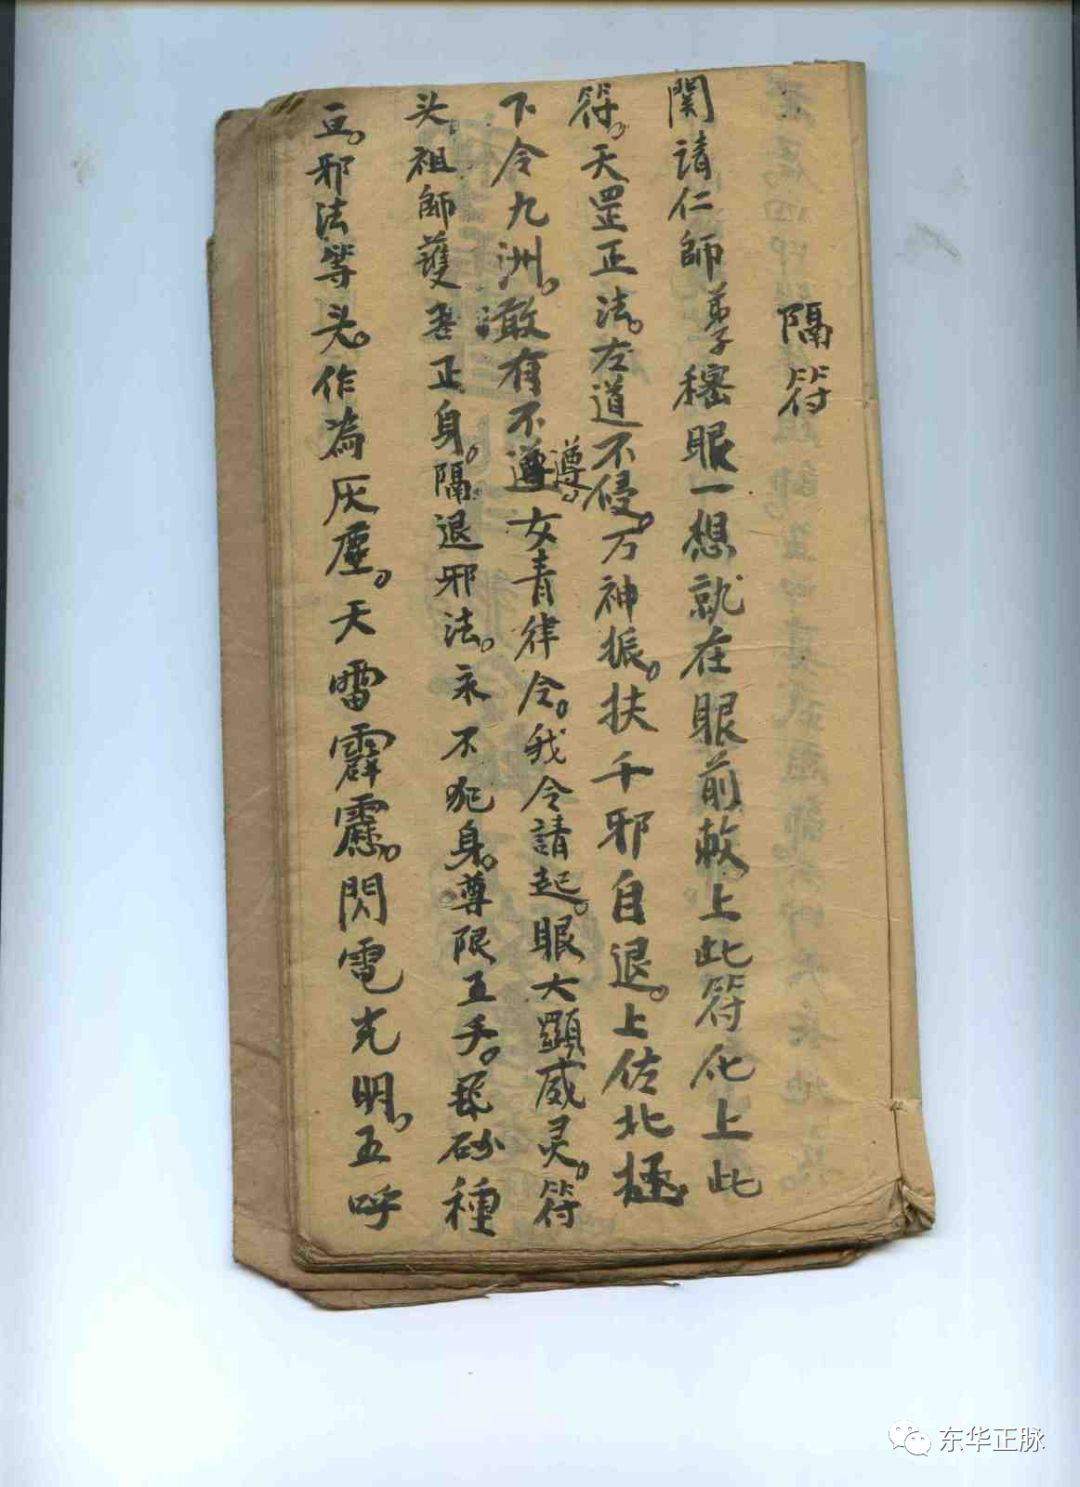 隔符
関請仁師弟子穩眼一想就在眼前敕上此符化上此
符。天罡正法。左道不侵。万神振。扶千邪自退。上佐北極
下令九洲。敢有不遵遵。女青律令。我令請起。眼大顯威灵。符
头。祖師護吾正身。隔退邪法。永不犯身。尊限五手。砂種
豆。邪法等头。作為灰塵。天雷霹靂。閃電光明。五呼
东华正脉